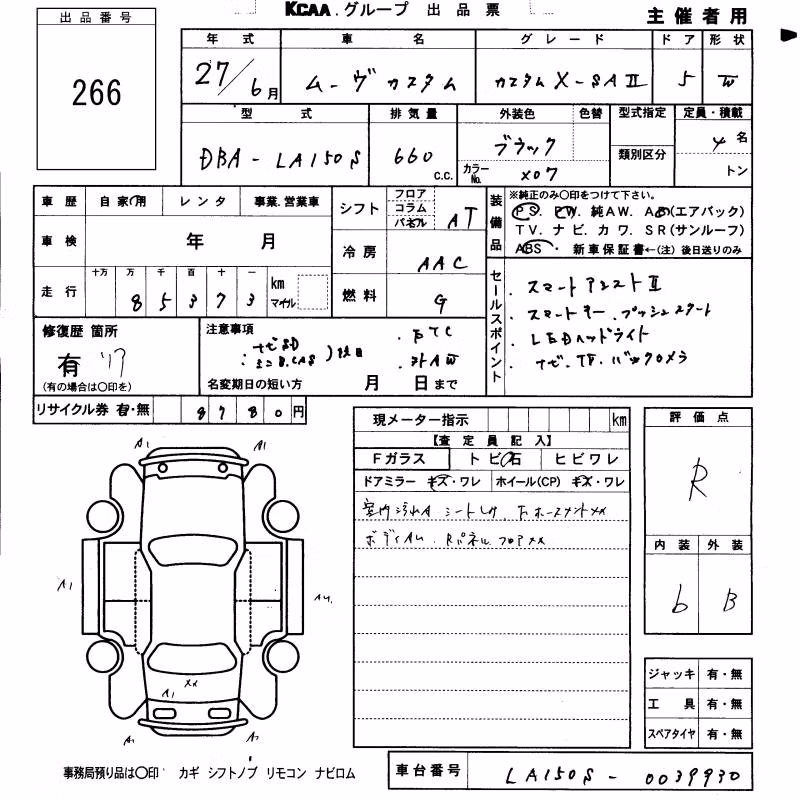 KCAA.グループ 出品票
主催者用
出品番号
266
年式 車名 グレード ドア 形状
27/6月 ムーヴカスタム カスタムX-SAⅡ 5 W
型式 排気量 外装色 色替 型式指定 定員・積載
DBA-LA150S 660 c.c. ブラック 類別区分 4名
カラーNo. X07 トン
車歴 自家用 レンタ 事業.営業車
車検 年 月
走行 十万 万 千 百 十 一 km マイル
8 5 3 7 3
シフト フロア コラム パネル AT
冷房 AAC
燃料 G
装備品
※純正のみ○印をつけて下さい。
PS. PW. 純AW. AB(エアバック)
TV. ナビ. カワ. SR(サンルーフ)
ABS ・ 新車保証書←(注) 後日送りのみ
セールスポイント
・スマートアシストⅡ
・スマートキー.プッシュスタート
・LEDヘッドライト
・ナビ.TV.バックカメラ
修復歴 箇所
有
(有の場合は○印を)
注意事項
・ナビSD
・ETC
・社外AW
名変期日の短い方 月 日まで
リサイクル券 有・無 8780円
現メーター指示 km
【査定員記入】
Fガラス トビ石 ヒビワレ
ドアミラー キズ・ワレ ホイール(CP) キズ・ワレ
室内汚れA シートシケ
Rパネル フロアXX
評価点
R
内装 外装
b B
ジャッキ 有・無
工具 有・無
スペアタイヤ 有・無
A1 A1
A1 A4
XX
A1
A2 A2
事務局預り品は○印 カギ シフトノブ リモコン ナビロム
車台番号 LA150S-0039930